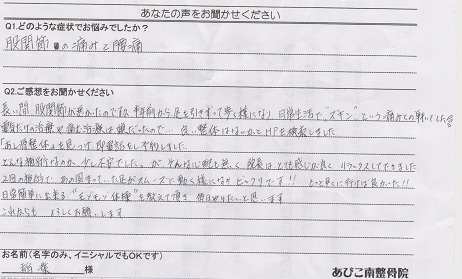 あなたの声をお聞かせください
Q1.どのような症状でお悩みでしたか?
股関節の痛みと腰痛
Q2.ご感想をお聞かせください
長い間、股関節が悪かったのですが、半年前から足を引きずって歩く様になり、日常生活で"ズキン"という痛みとの戦いでした。
治療や痛む治療は嫌だったので… 良い整体はないかとHPを検索しました。
を見つけ、即電話をし予約しました。
どんな施術なのか、少し不安でした。が、そんな心配も無く、院長はとても感じが良く リラックスしてできました
2回の施術で あの固まっていた足がスムーズに動く様になり ビックリです!! もっと早くに行けば良かった!!
日常簡単に出来る"モデモン体操"も教えて頂き 毎日やりたいと思います
これからも よろしくお願いします
お名前(名字のみ、イニシャルでもOKです)
様
あびこ南整骨院